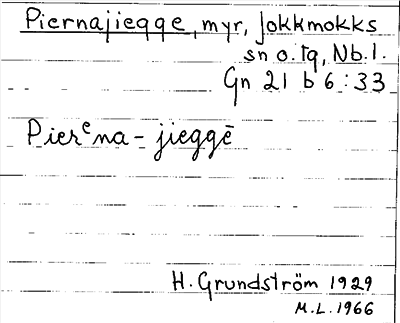 Piernajiegge, myr, Jokkmokks
sn o. tg, Nb. l.
Gn 21 b 6 : 33
Pierᵉna - jieggē
H. Grundström 1929
M.L. 1966